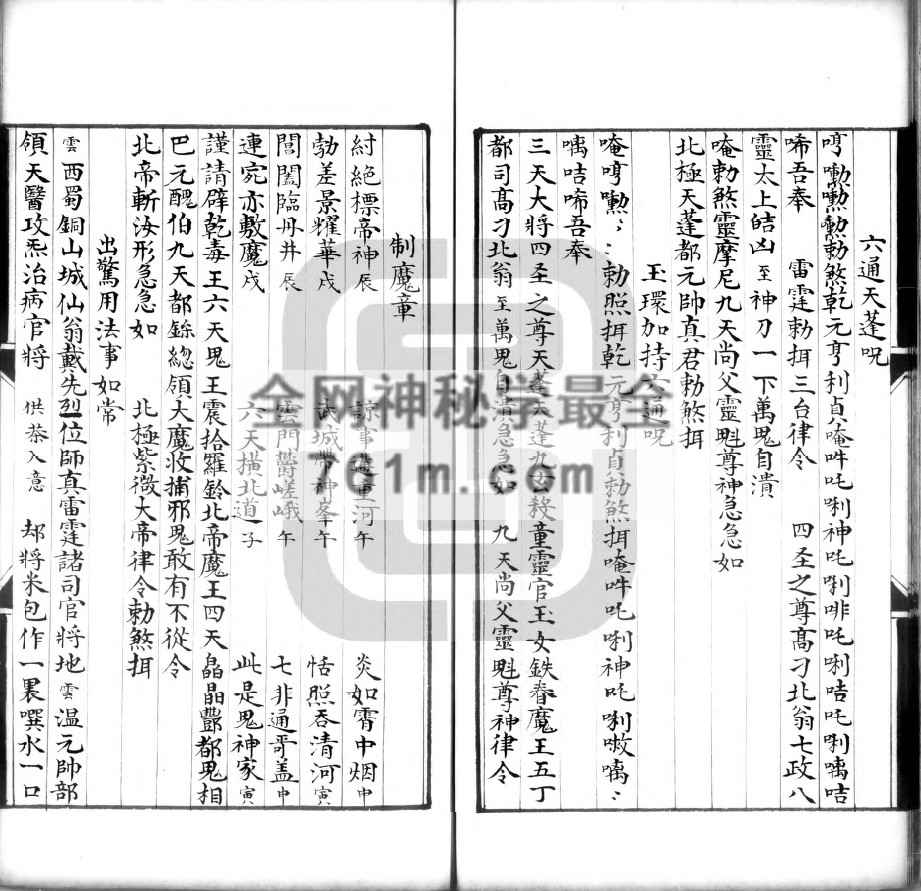 六通天蓬咒
啍嘞嘞嘞勅煞乾元亨利貞唵吽吒唎神吒唎啡吒唎咭吒唎㗱咭
唏吾奉 雷霆勅揖三台律令 四圣之尊高刁北翁七政八
靈太上皓凶至神刀一下萬鬼自潰
唵勅煞靈摩尼九天尚父靈魁尊神急急如
北極天蓬都元帥真君勅煞揖
玉環加持六通咒
元亨利貞勅煞揖唵吽吒唎神吒唎
咭唏吾奉
三天大將四圣之尊天蓬天蓬九玄殺童靈官玉女鉄眷魔王五丁
都司高刁北翁至萬鬼自潰急急如 九天尚父靈魁尊神律令
制魔章
紂絕標帝神辰 諒事遶重河午 炎如霄中烟申
勃差景耀華戌 武城帶神峯午 恬照吞清河寅
閭闔臨丹井辰 雲門鬱嵯峨午 七非通哥盖申
連宛亦敷魔戌 六天橫北道子 此是鬼神家寅
謹請辟乾毒王六天鬼王震拾羅鈴北帝魔王四天皛晶酆都鬼相
巴元醜伯九天都統總領大魔收捕邪鬼敢有不從令
北帝斬汝形急急如 北極紫微大帝律令勅煞揖
出驚用法事如常
雲西蜀銅山城仙翁戴先烈位師真雷霆諸司官將地雲温元帥部
領天醫攻炁治病官將 供茶入意 却將米包作一裹噀水一口
全网神秘学最全
761m.com